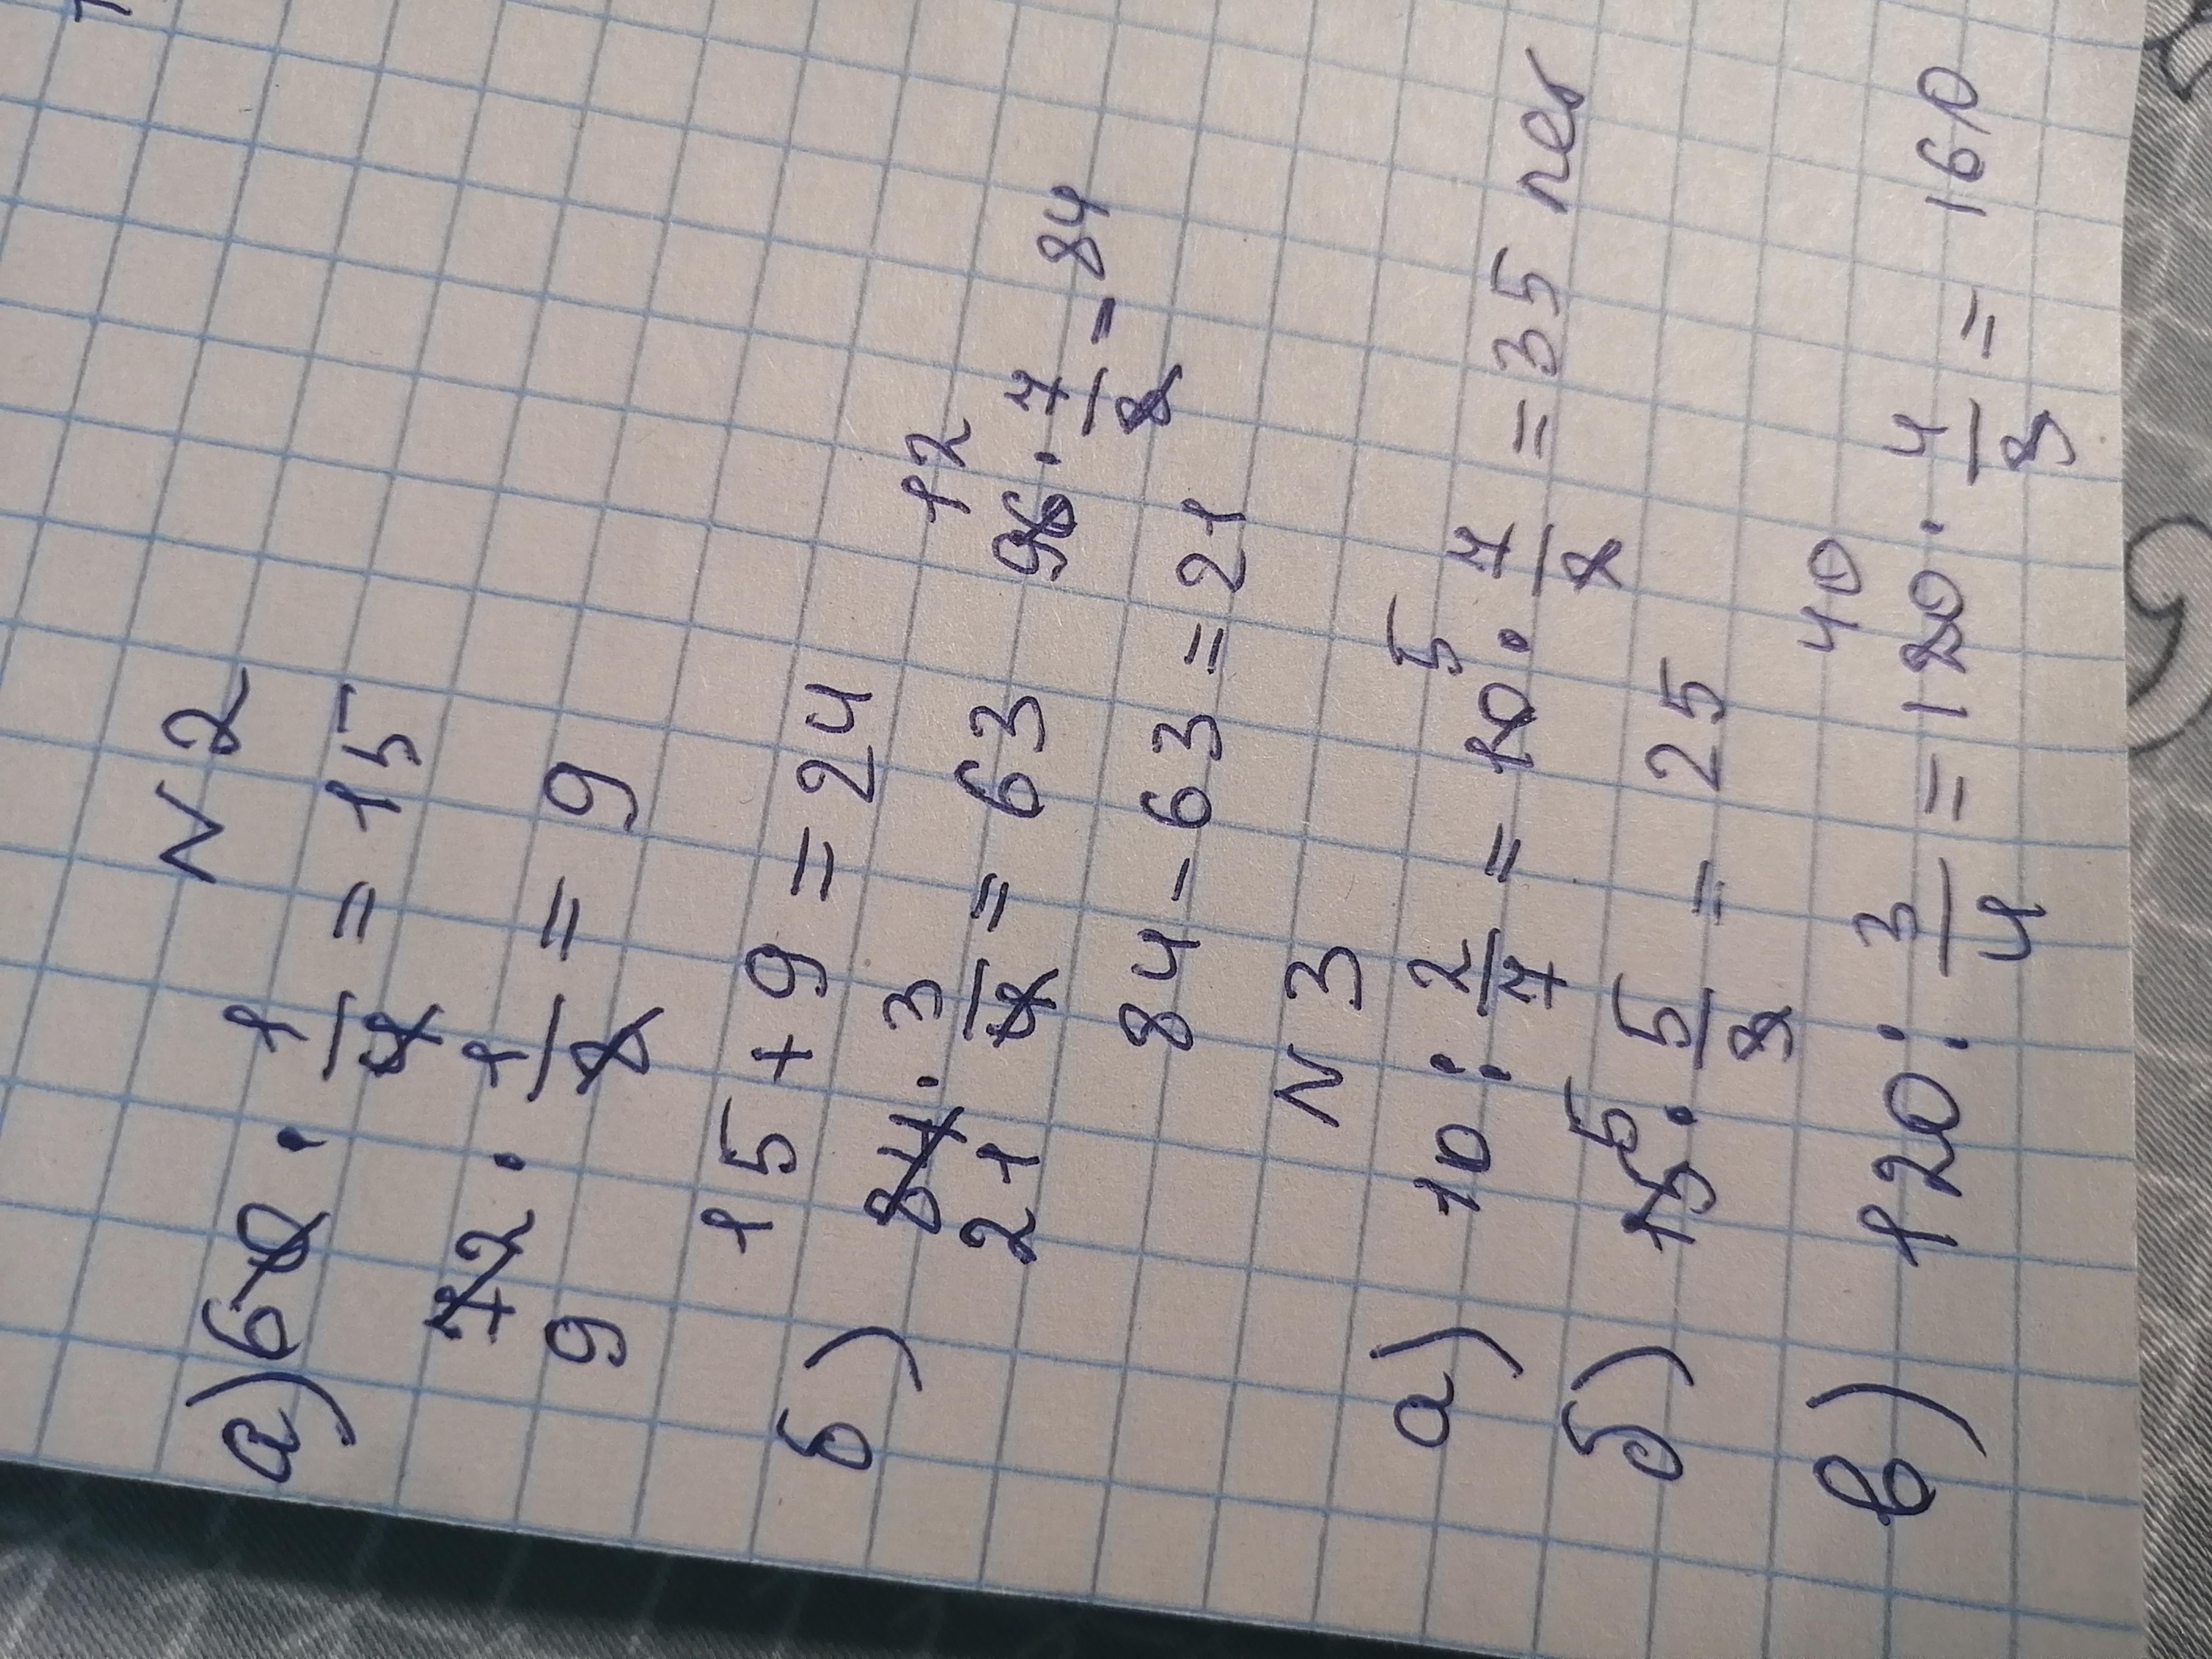 N 2
а) 60 · 1/4 = 15
72 · 1/8 = 9
9
15 + 9 = 24
б) 84 · 3/4 = 63
21
12
96 · 7/8 = 84
84 - 63 = 21
N 3
5
а) 10 : 2/7 = 10 · 7/2 = 35 лет
5
б) 15 · 5/3 = 25
40
в) 120 : 3/4 = 120 · 4/3 = 160